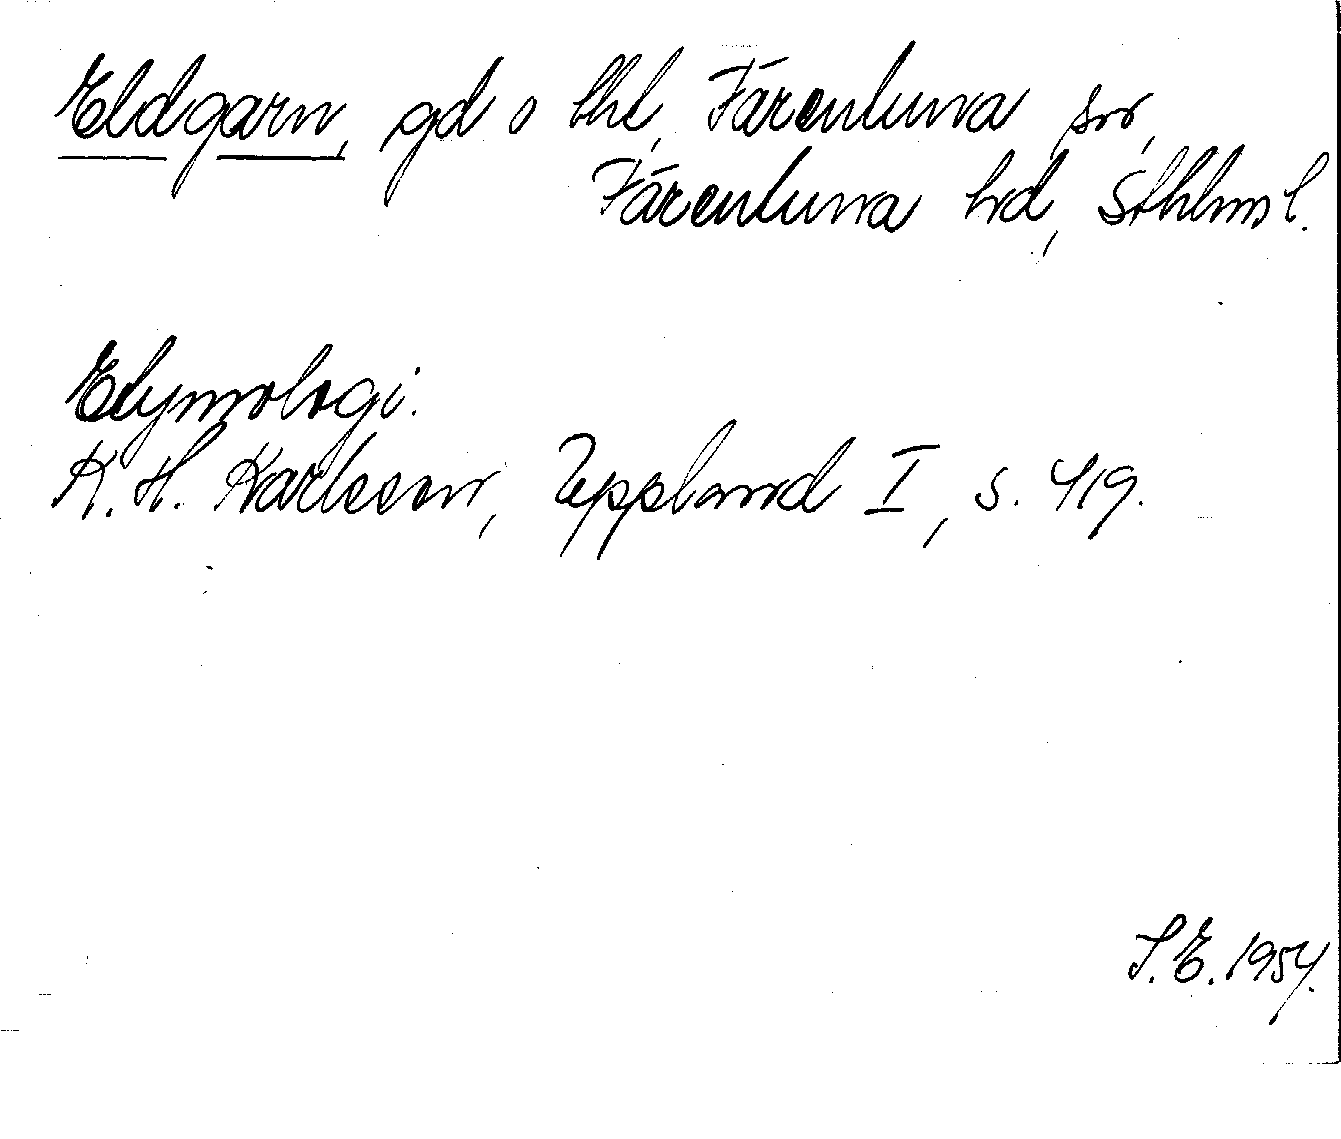 Eldgarn, gd o bhl, Färentuna sn,
Färentuna hd, Sthlms l.
Etymologi.
K. H. Karlsson, Uppland I, s. 419.
S. E. 1954.